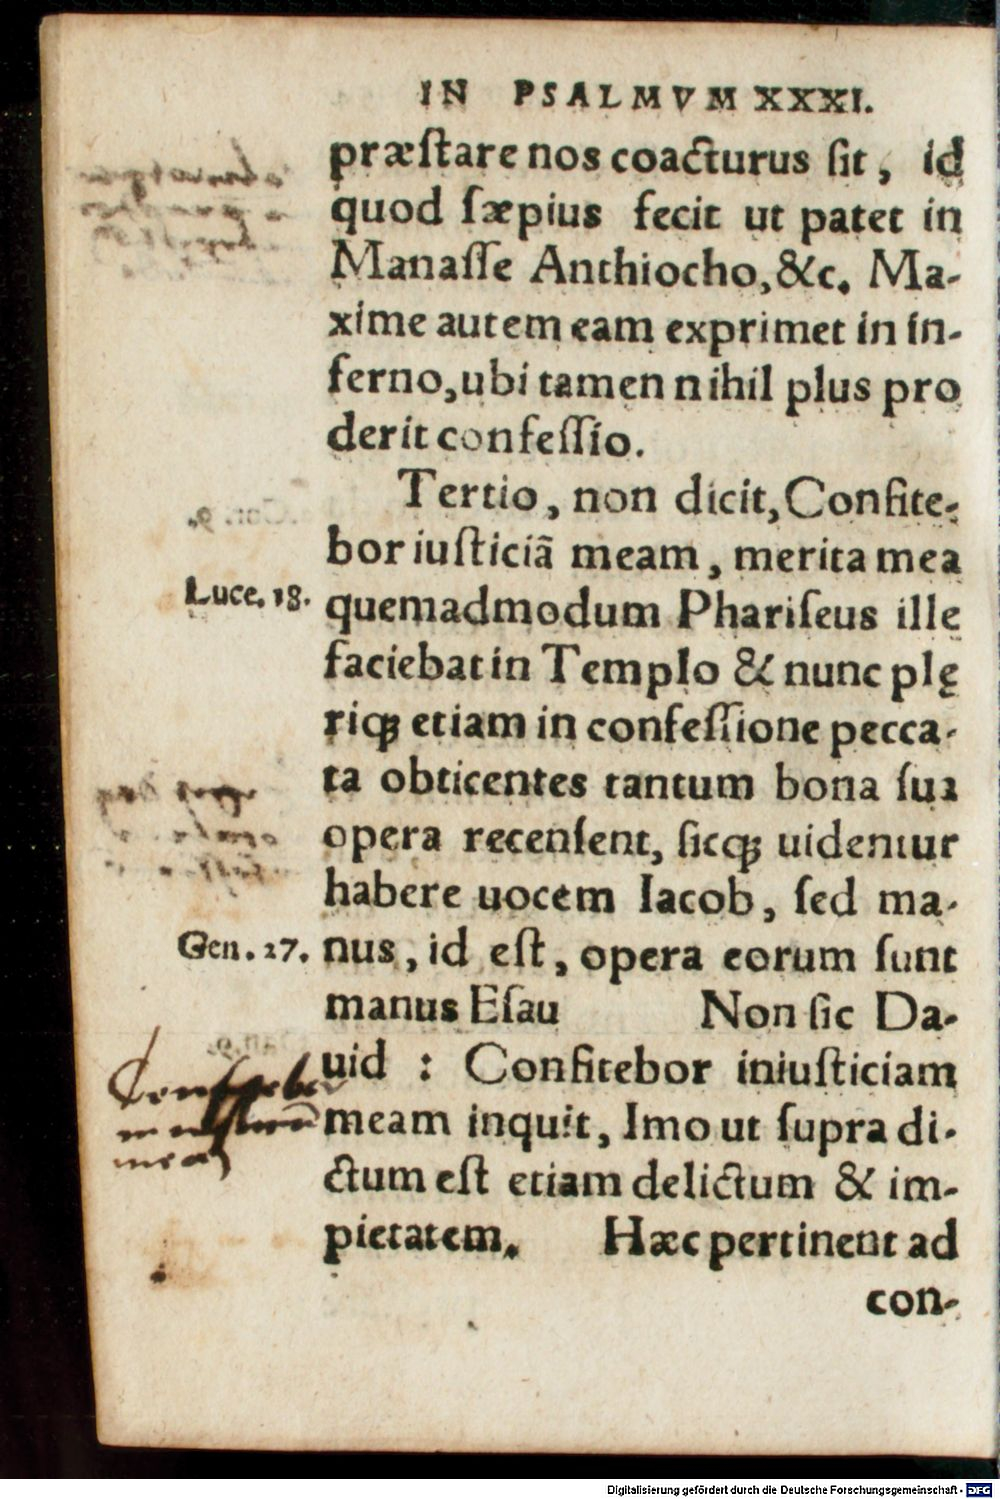 IN PSALMVM XXXI.
præſtare nos coacturus ſit, id
quod ſæpius fecit ut patet in
Manaſſe Anthiocho, &c. Ma-
xime autem eam exprimet in in-
ferno, ubi tamen nihil plus pro
derit confeſſio.
Tertio, non dicit, Confite-
bor iuſticiã meam, merita mea
Luce. 18.
quemadmodum Phariſeus ille
faciebat in Templo & nunc plę
riqꝫ etiam in confeſſione pecca-
ta obticentes tantum bona ſua
opera recenſent, ſicqꝫ uidentur
habere uocem Iacob, ſed ma-
Gen. 27.
nus, id eſt, opera eorum ſunt
manus Eſau Non ſic Da-
uid : Confitebor iniuſticiam
meam inquit, Imo ut ſupra di-
ctum eſt etiam delictum & im-
pietatem. Hæc pertinent ad
con-
Confitebor
meam
Digitalisierung gefördert durch die Deutsche Forschungsgemeinschaft - DFG